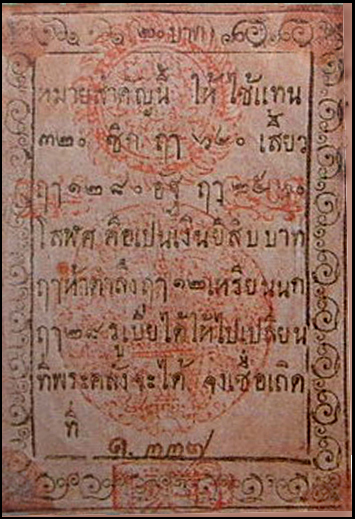 (๒๐ บาท)
หมายสำคัญนี้ ให้ ใช้แทน
๓๒๐ ซิก ฤๅ ๖๔๐ เสี้ยว
ฤๅ ๑๒๘๐ อัฐ ฤๅ ๒๕๖๐
โสฬศ คือเปนเงินยี่สิบบาท
ฤๅห้าตำลึงฤๅ ๑๒เหรียนนก
ฤๅ๒๘ รูเบียได้ให้ไปเปลี่ยน
ที่พระคลังจะได้ จงเชื่อเถิด
ที่